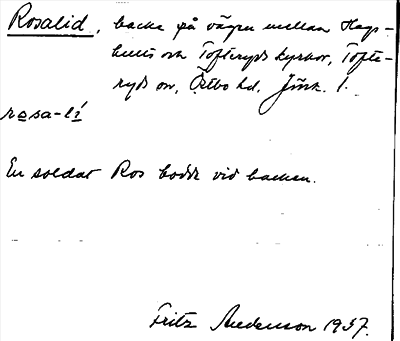 Rosalid, backe på vägen mellan Hags-
hults och Tofteryds kyrkor, Tofte-
ryds sn, Östbo hd, Jönk. l.
rosa-lí
En soldat Ros bodde vid backen.
Fritz Andersson 1937.